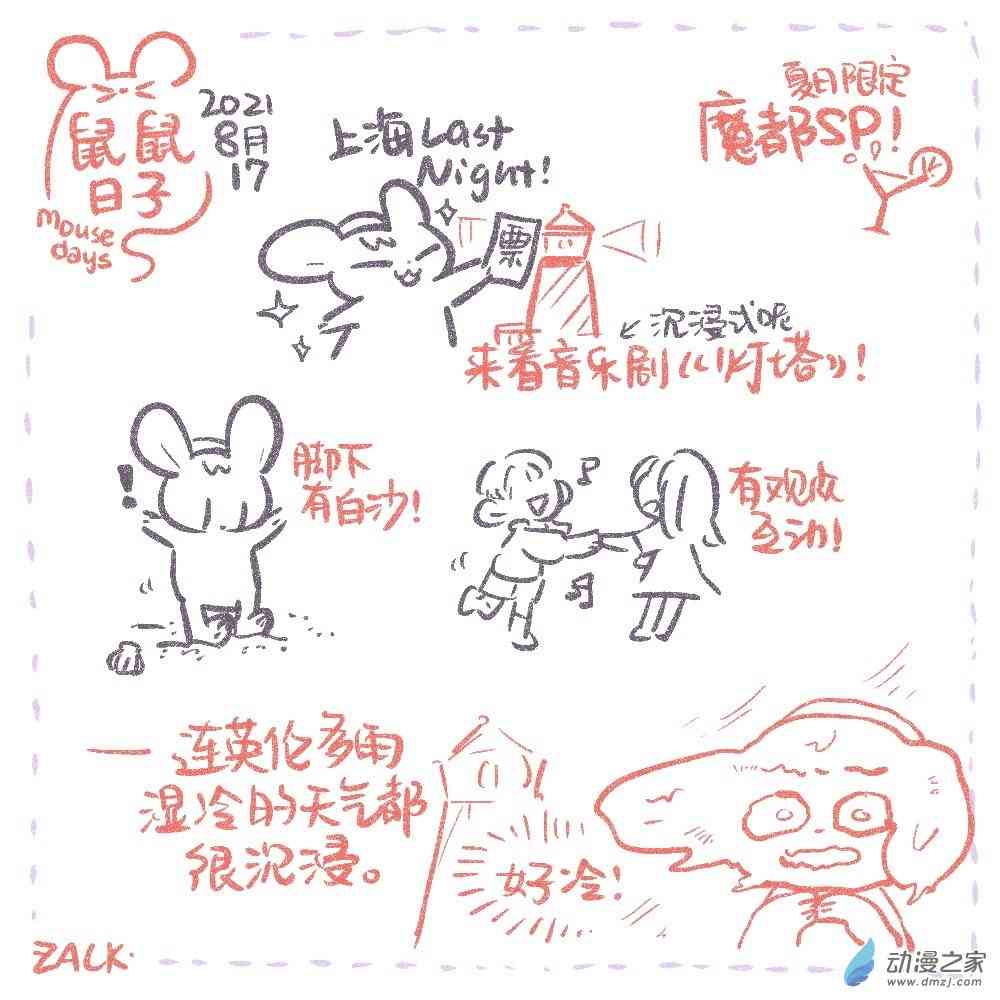 鼠鼠
日子
mouse
days
2021
8月
17
上海Last
Night!
夏日限定
魔都SP!
票
沉浸式呢
来看音乐剧《灯塔》!
脚下
有白沙!
有观众
互动!
—连英伦多雨
湿冷的天气都
很沉浸。
好冷!
ZALK.
动漫之家
www.dmzj.com